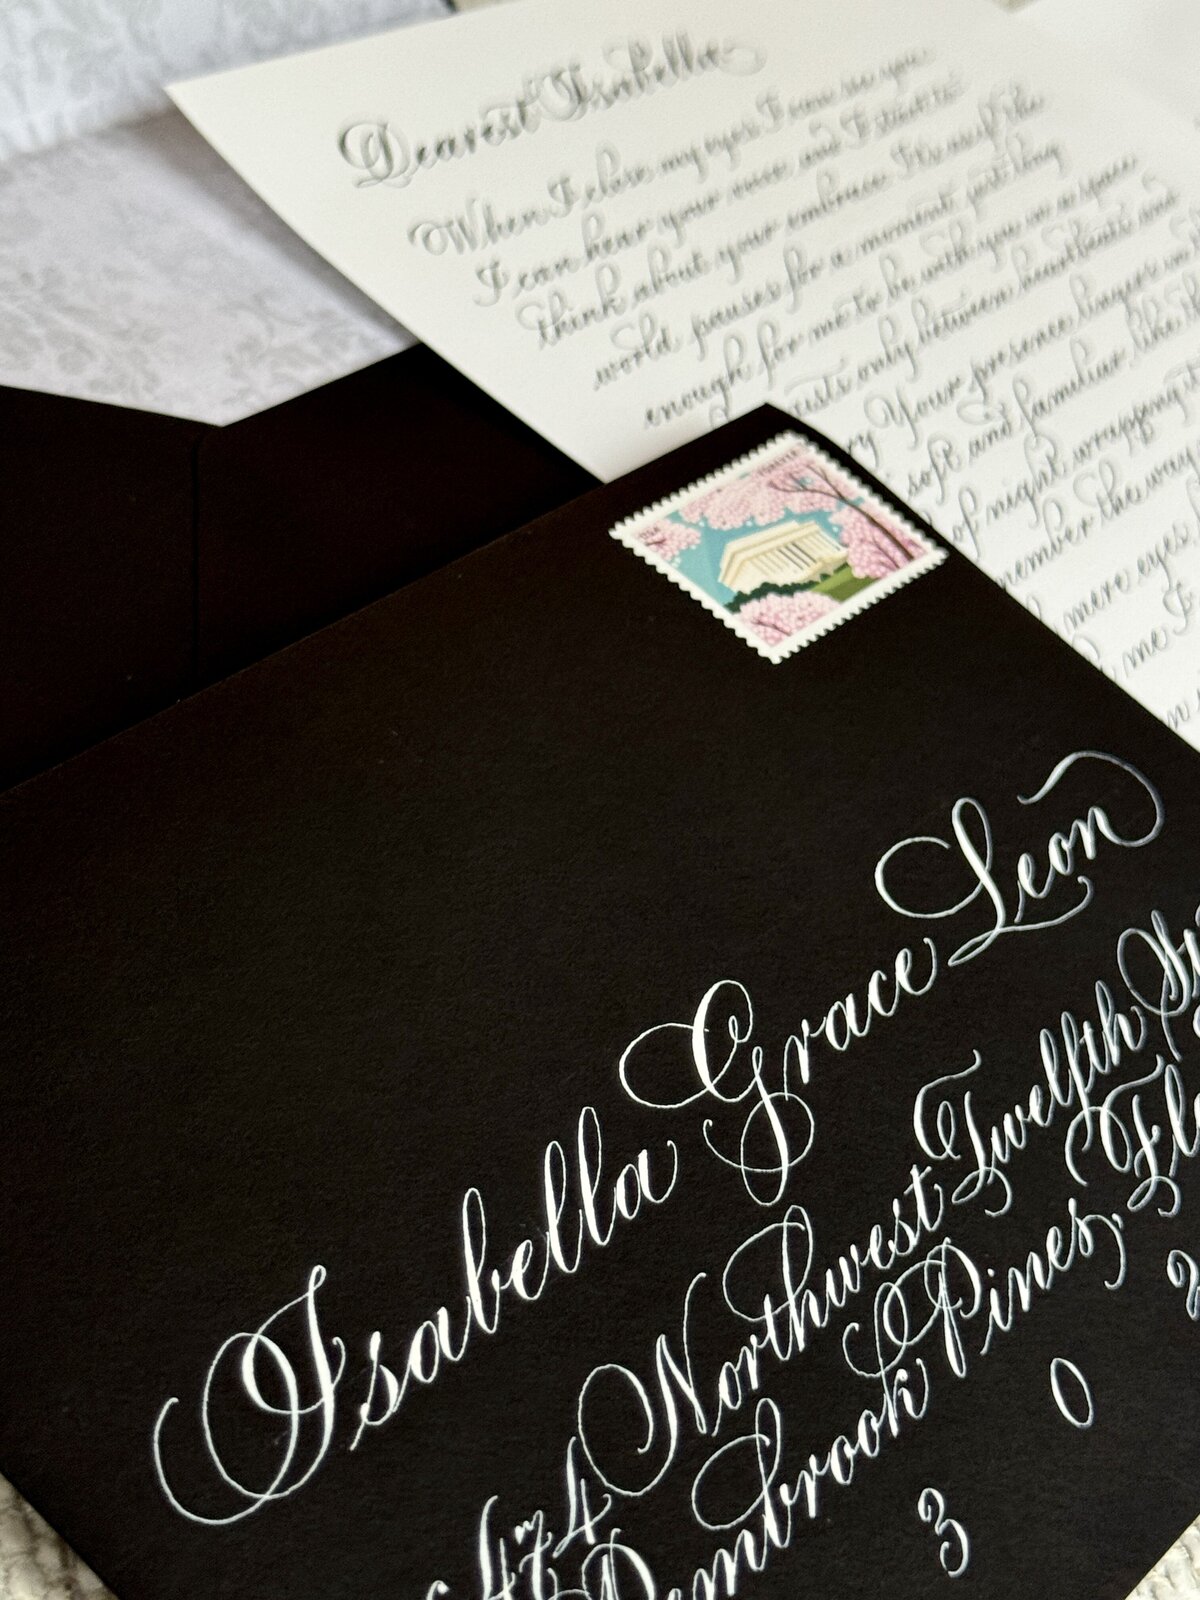 Dearest Isabella
When I close my eyes I can see you
I can hear your voice and I start to
think about your embrace It's as if the
world pauses for a moment just long
enough for me to be with you in a space
only between heartbeats and
Your presence lingers in
soft and familiar like the
of night wrapping
the way
mere eyes,
me I
FOREVER
USA
Isabella Grace Leon
474 Northwest Twelfth
Pembrook Pines,
3 0